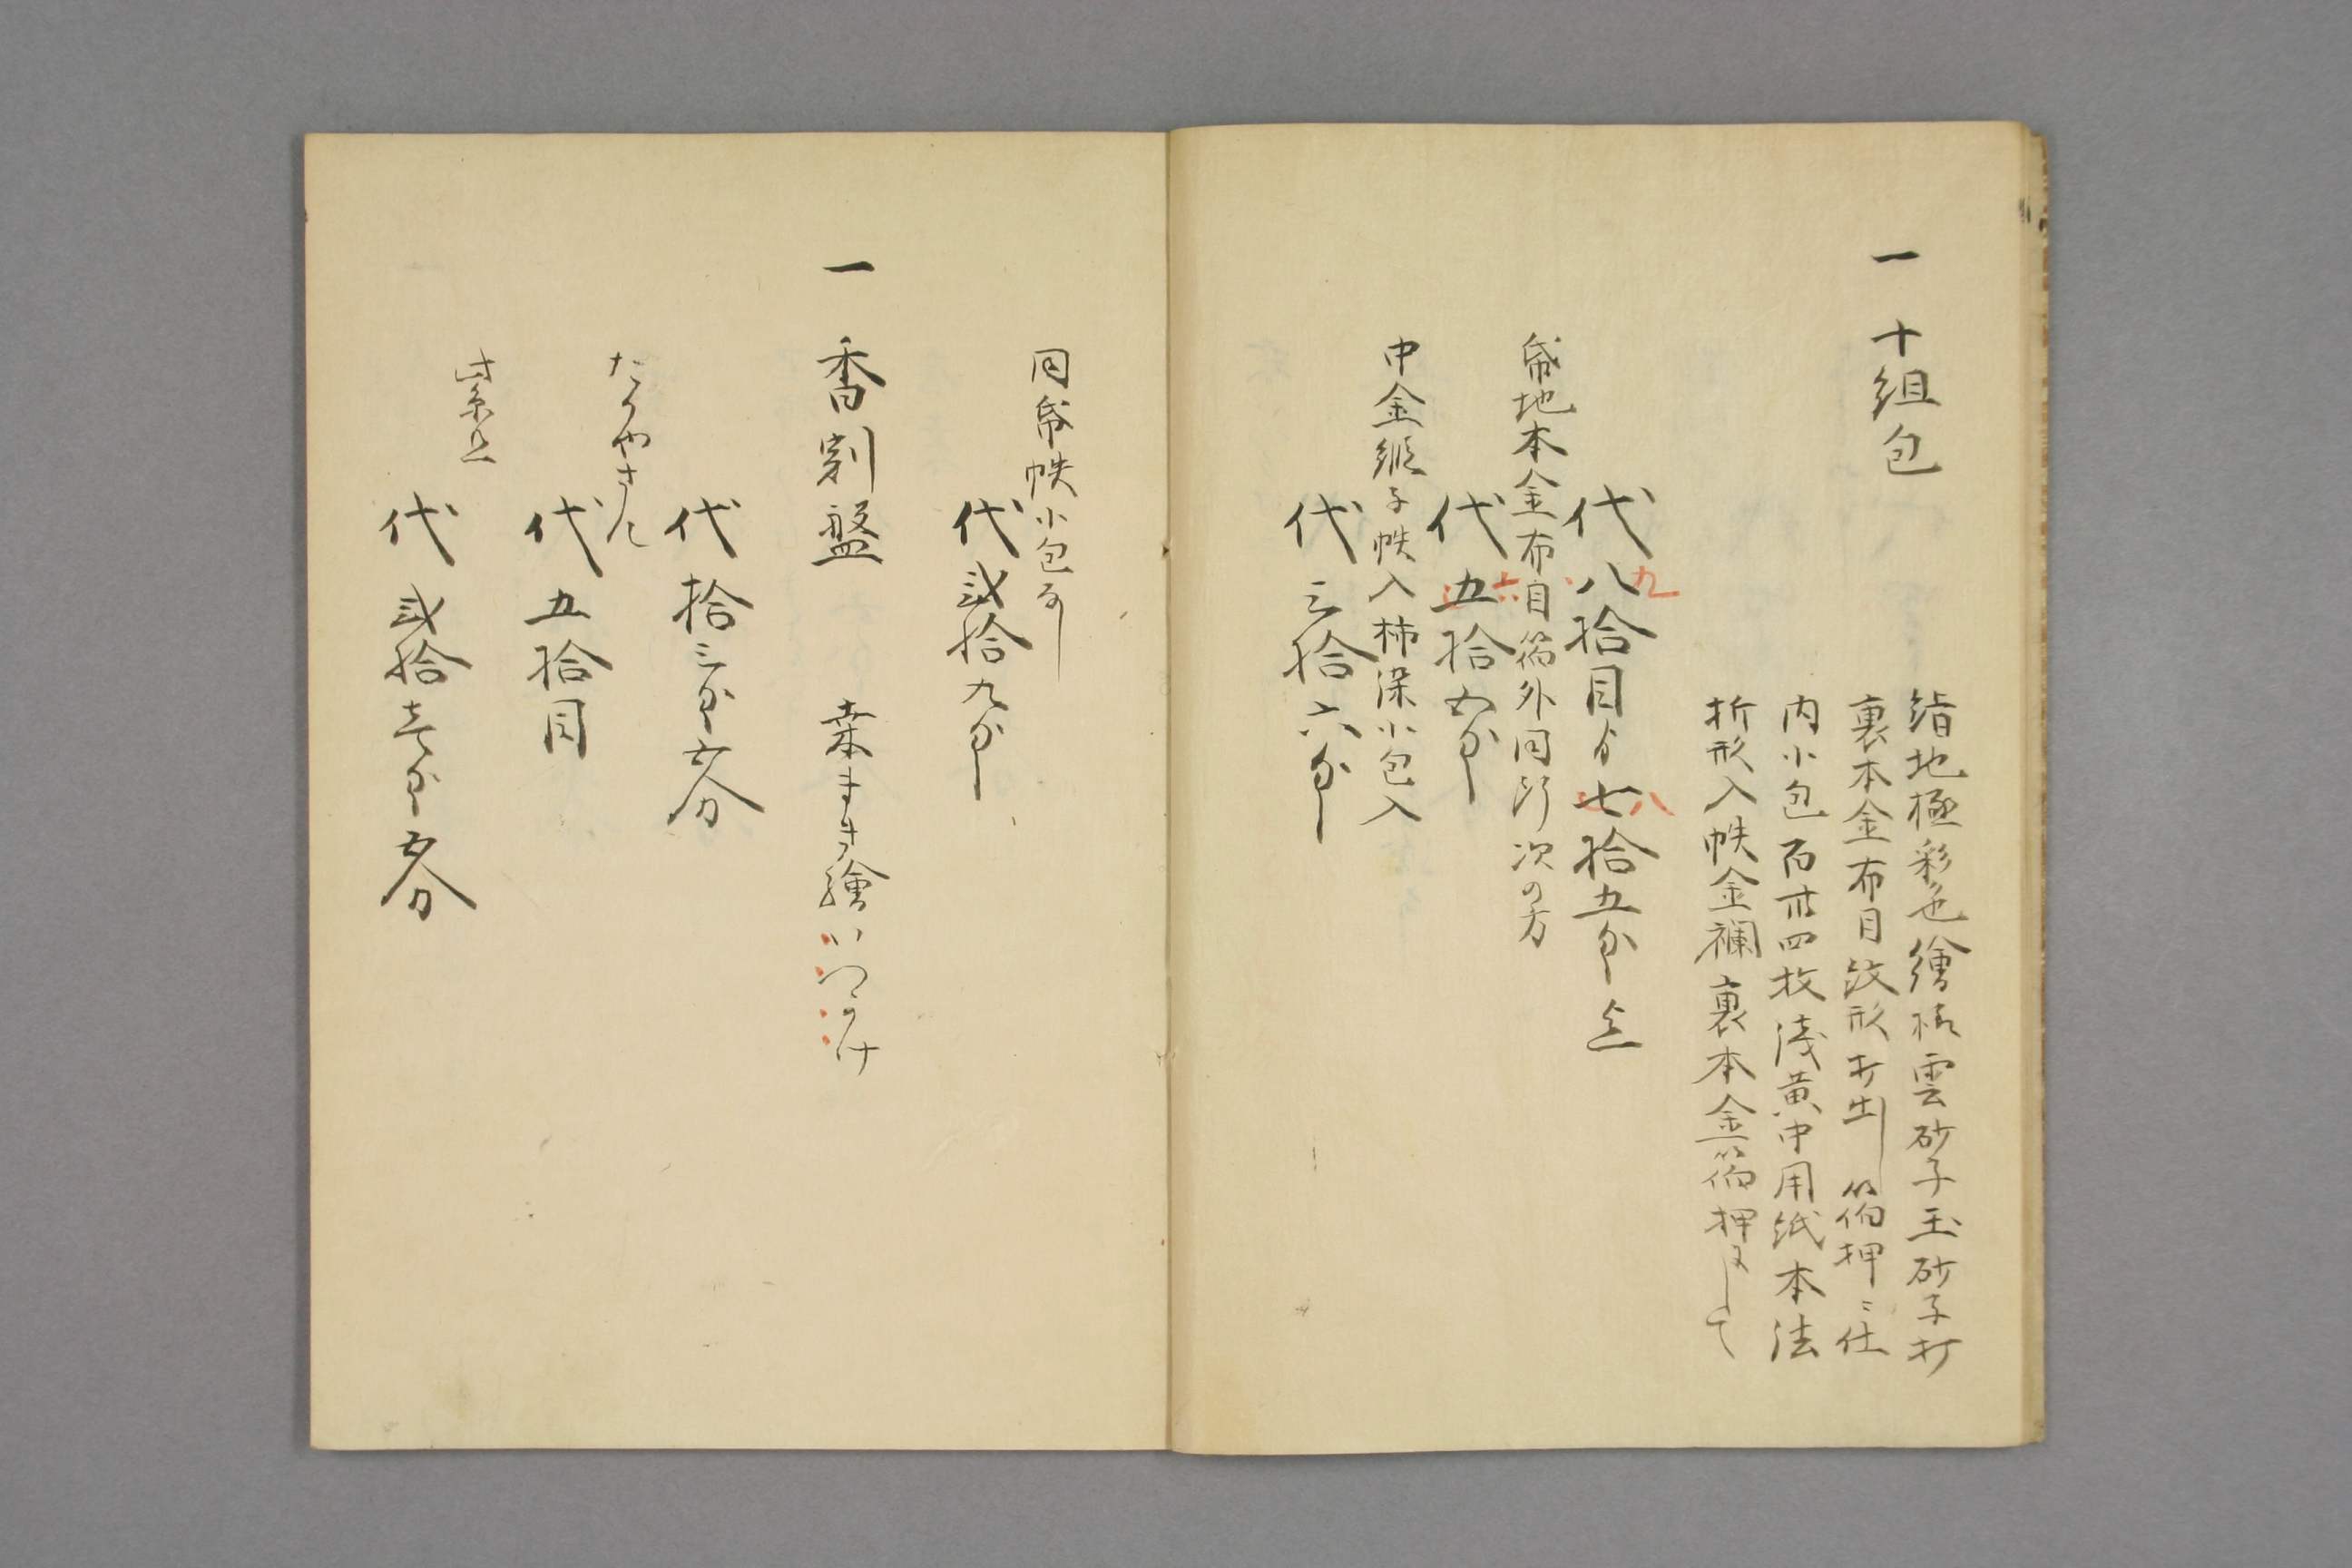 一 十組包
絹地極彩色繪様雲砂子玉砂子打
裏本金布目紋形打出シ箔押ニ仕
内小包百廿四枚淺黄中用紙本法
折形入帙金襴裏本金箔押ニして
九 八
代八拾目ゟ七拾五匁迄
帋地本金布目箔外同断次の方
六
代五拾五匁
中金緞子帙入柿染小包入
代三拾六匁
同帋帙小包
代弐拾九匁
一 香割盤 桑まき繪いつかけ
代拾三匁五分
たかやさん
代五拾目
紫檀
代弐拾壱匁五分